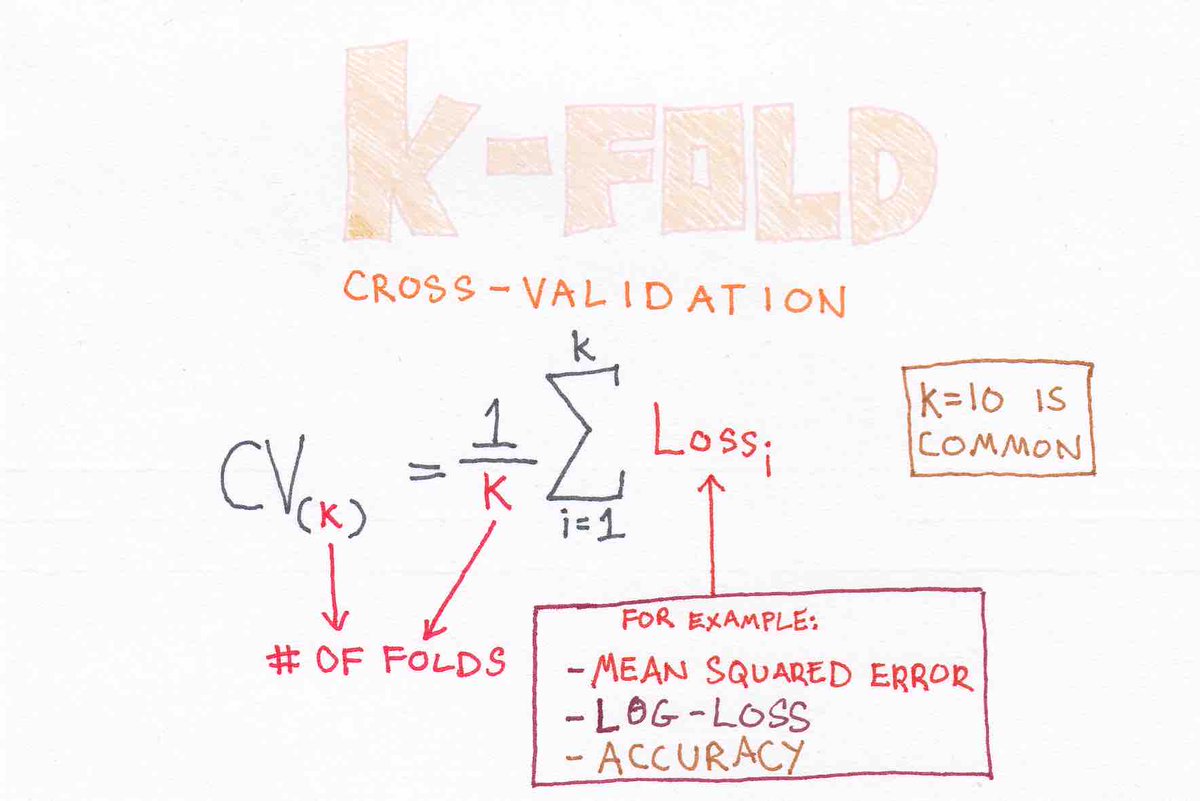 K-FOLD
CROSS-VALIDATION
CV(K) = 1/K k Σ i=1 Lossi
K=10 IS
COMMON
# OF FOLDS
FOR EXAMPLE:
- MEAN SQUARED ERROR
- LOG-LOSS
- ACCURACY